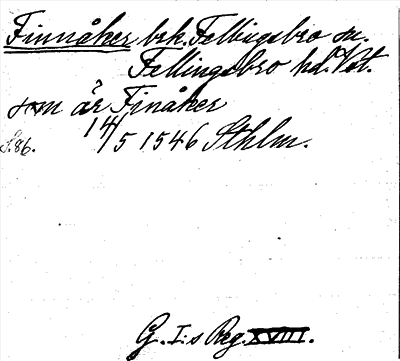 Finnåker brk. Fellingsbro sn.
Fellingsbro hd. Vst.
som är Finåker
14/5 1546 Sthlm.
S. 86.
G. I:s Reg. XVIII.